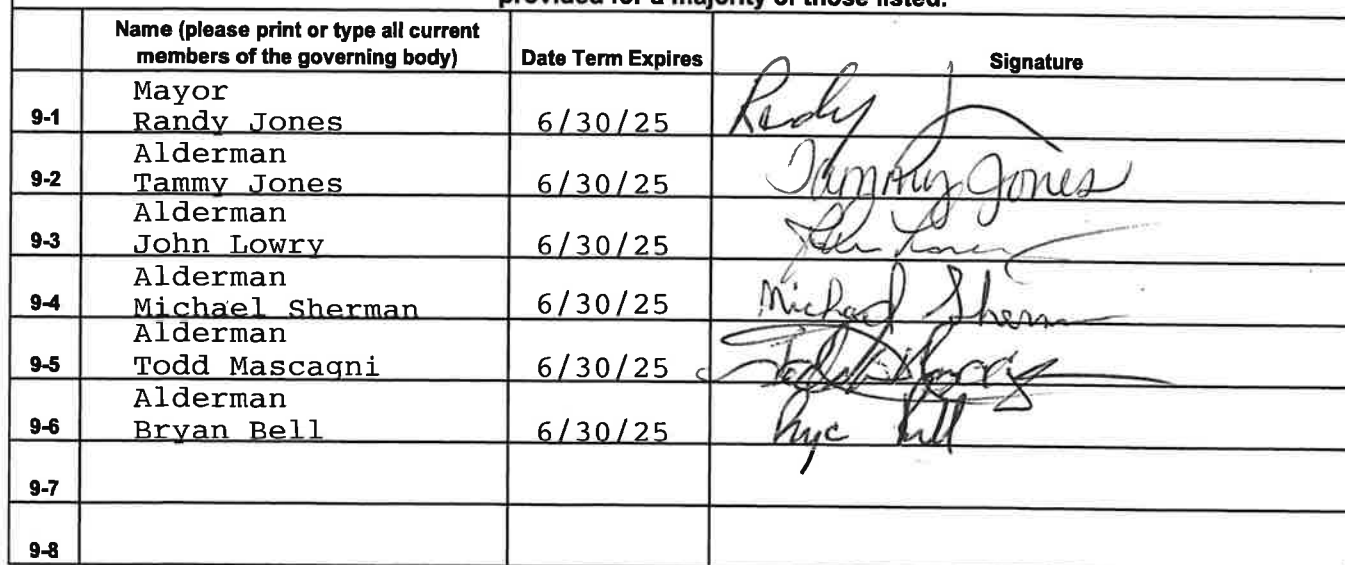 provided for a majority of those listed.
Name (please print or type all current
members of the governing body)
Date Term Expires
Signature
Mayor
9-1 Randy Jones 6/30/25 Randy J
Alderman
9-2 Tammy Jones 6/30/25 Tammy Jones
Alderman
9-3 John Lowry 6/30/25 John
Alderman
9-4 Michael Sherman 6/30/25 Michael Sherm
Alderman
9-5 Todd Mascagni 6/30/25
Alderman
9-6 Bryan Bell 6/30/25
9-7
9-8